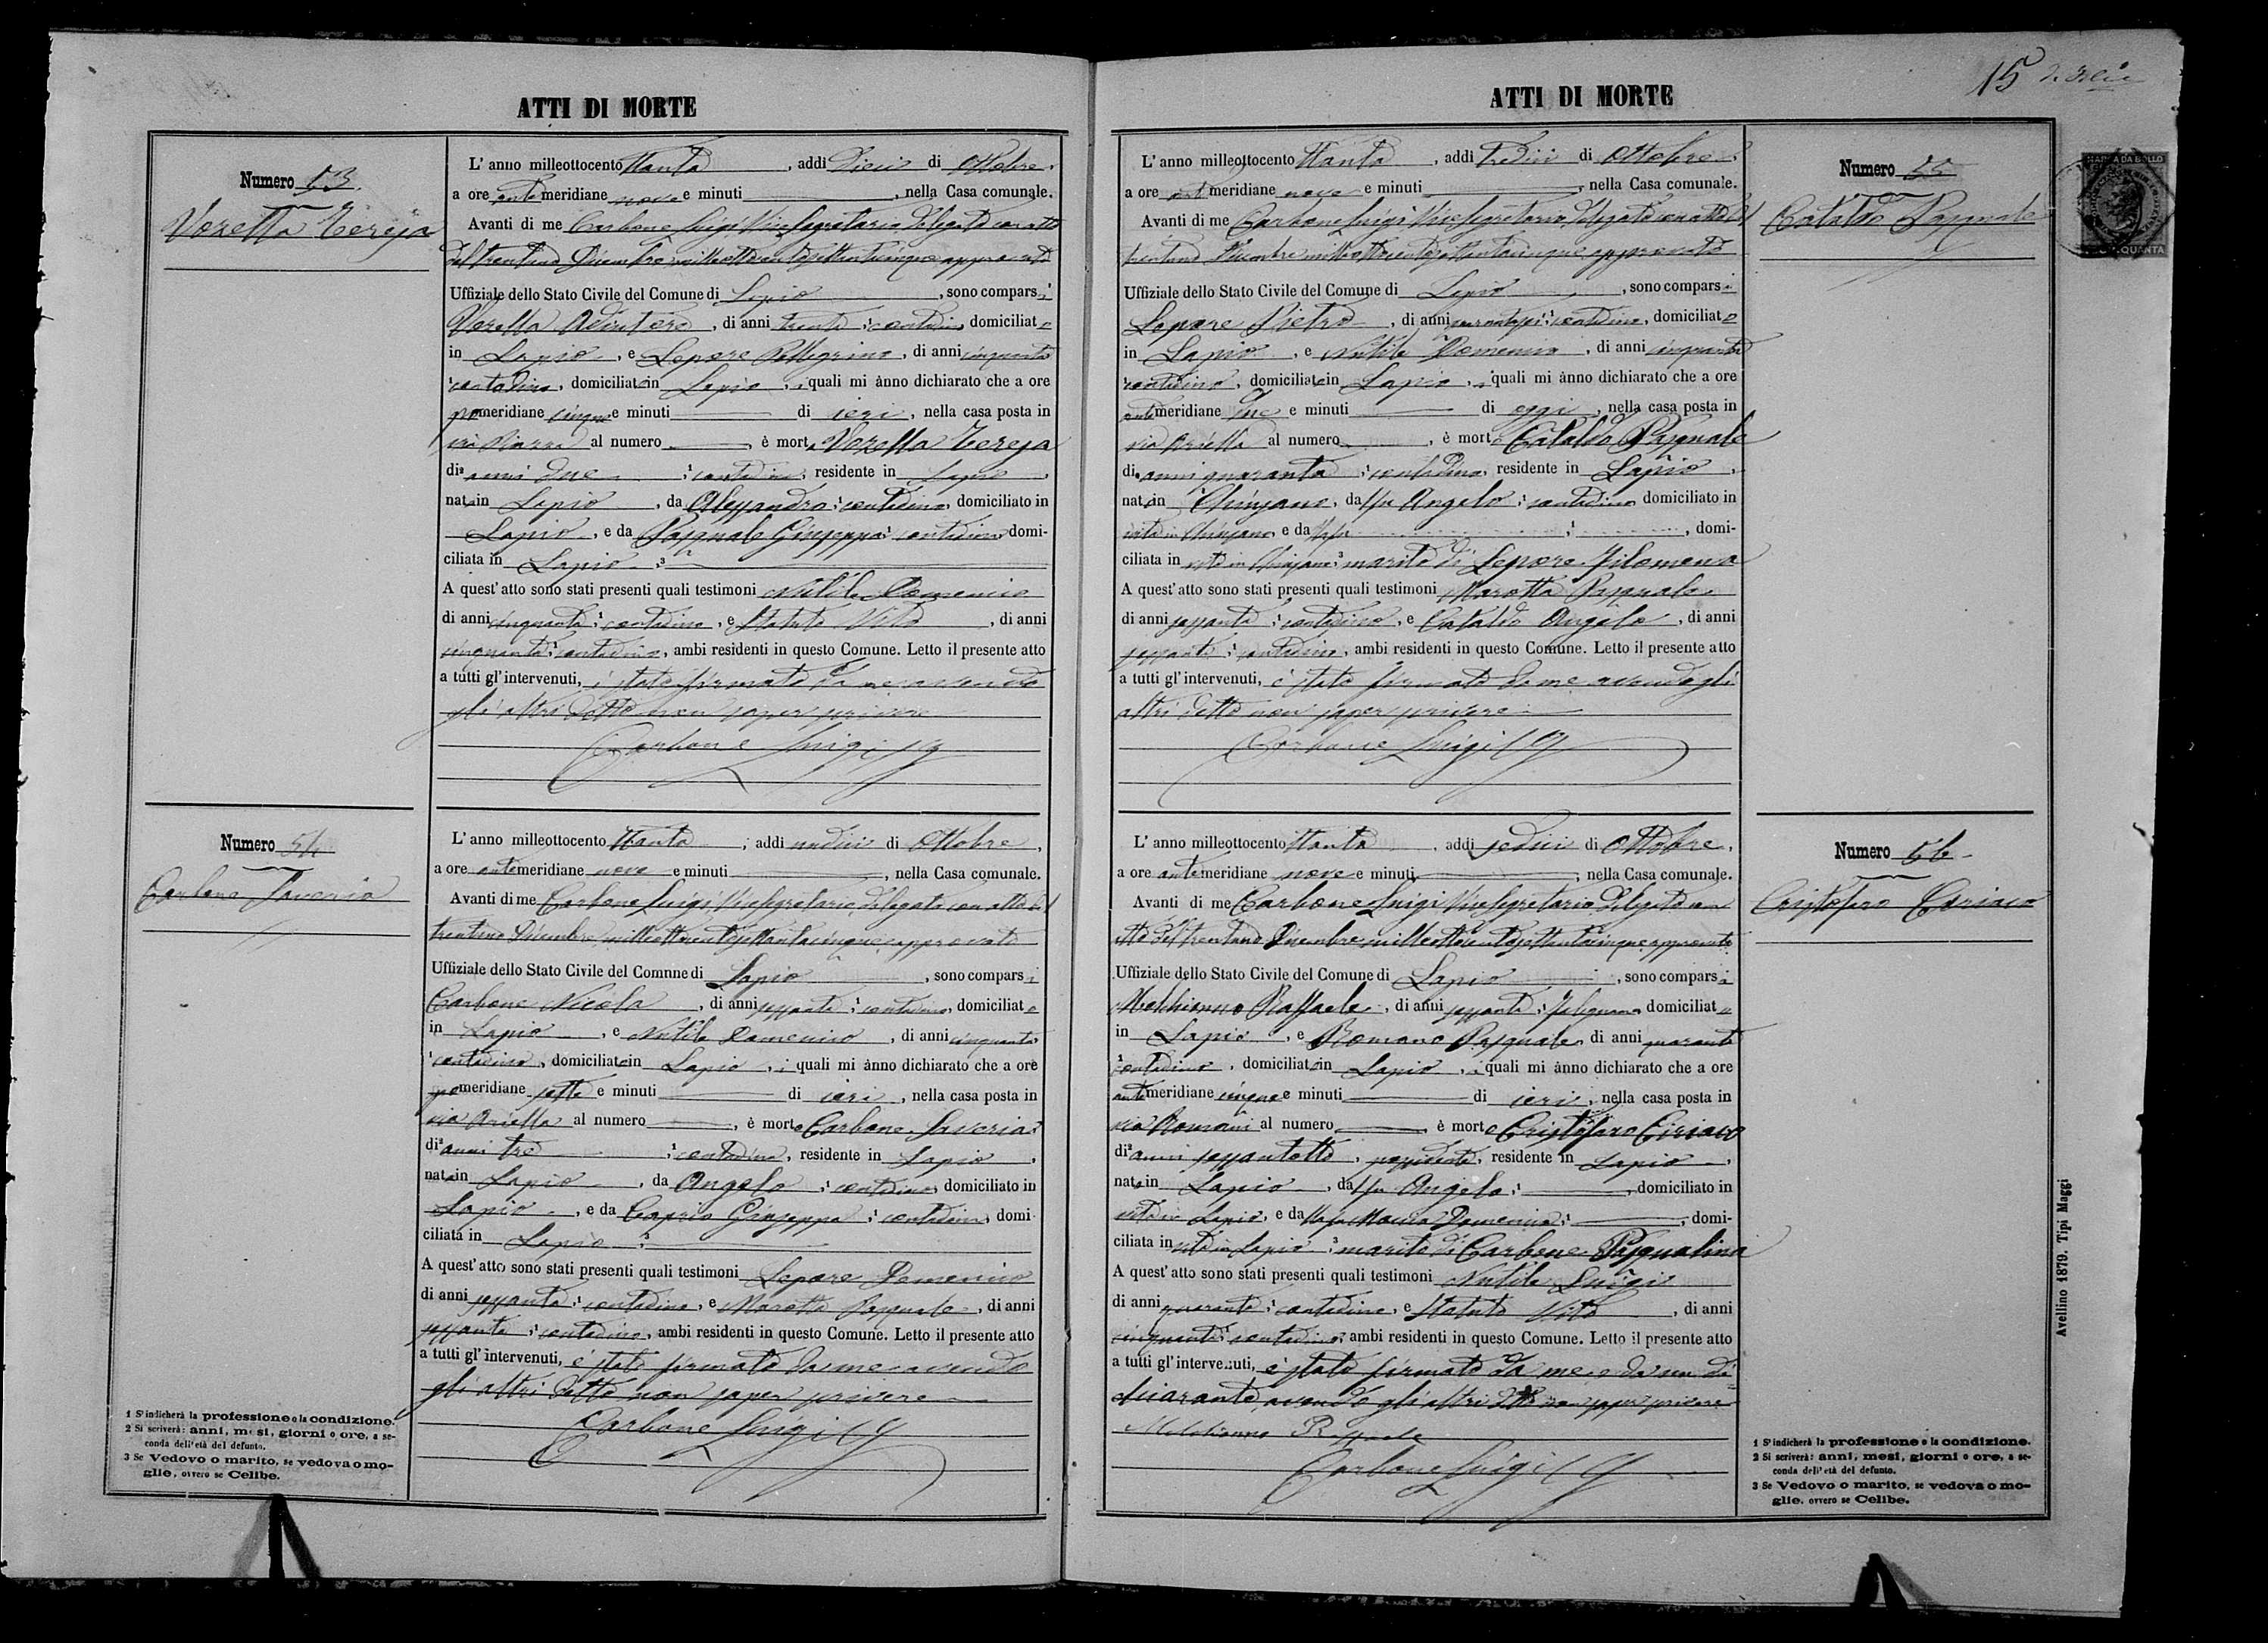 ATTI DI MORTE
Numero 53.
Vozella Teresa
L' anno milleottocento ottanta, addì Dieci di Ottobre,
a ore antemeridiane nove e minuti, nella Casa comunale.
Avanti di me Carbone Luigi Vice Segretario delegato con atto
del trentuno Dicembre milleottocentosettantacinque approvato
Uffiziale dello Stato Civile del Comune di Lapio, sono comparsi
Vozella, di anni trenta, contadino, domiciliato
in Lapio, e Lepore Pellegrino, di anni cinquanta
contadino, domiciliato in Lapio, i quali mi ànno dichiarato che a ore
pomeridiane cinque e minuti di ieri, nella casa posta in
via Piazza al numero, è morta Vozella Teresa
di anni due, contadina, residente in Lapio,
nata in Lapio, da Alessandro, contadino, domiciliato in
Lapio, e da Pasquale Giuseppa, contadina, domi-
ciliata in Lapio
A quest' atto sono stati presenti quali testimoni Nutile Domenico
di anni cinquanta, contadino, e Statuto Vito, di anni
cinquanta, contadino, ambi residenti in questo Comune. Letto il presente atto
a tutti gl' intervenuti, è stato firmato da me avendo
gli altri detto non saper scrivere
Carbone Luigi
Numero 54
Carbone Saveria
L' anno milleottocento ottanta, addì undici di Ottobre,
a ore antemeridiane nove e minuti, nella Casa comunale.
Avanti di me Carbone Luigi Vice Segretario delegato con atto del
trentuno Dicembre milleottocentosettantacinque approvato
Uffiziale dello Stato Civile del Comnne di Lapio, sono comparsi
Carbone Nicola, di anni sessanta, contadino, domiciliato
in Lapio, e Nutile Domenico, di anni cinquanta,
contadino, domiciliato in Lapio, i quali mi ànno dichiarato che a ore
pomeridiane sette e minuti di ieri, nella casa posta in
via Ariella al numero, è morta Carbone Saveria
di anni tre, contadina, residente in Lapio,
nata in Lapio, da Angelo, contadino, domiciliato in
Lapio, e da Caprio Giuseppa, contadina, domi-
ciliata in Lapio
A quest' atto sono stati presenti quali testimoni Lepore Domenico
di anni sessanta, contadino, e Marotta Pasquale, di anni
sessanta, contadino, ambi residenti in questo Comune. Letto il presente atto
a tutti gl' intervenuti, è stato firmato da me avendo
gli altri detto non saper scrivere
Carbone Luigi
1 S' indicherà la professione o la condizione.
2 Si scriverà: anni, mesi, giorni o ore, a se-
conda dell'età del defunto.
3 Se Vedovo o marito, se vedova o mo-
glie, ovvero se Celibe.
15
MARCA DA BOLLO
ATTI DI MORTE
Numero 55
Cataldo Pasquale
L' anno milleottocento ottanta, addì Tredici di Ottobre,
a ore antemeridiane nove e minuti, nella Casa comunale.
Avanti di me Carbone Luigi Vice Segretario delegato con atto del
trentuno Dicembre milleottocentosettantacinque approvato
Uffiziale dello Stato Civile del Comune di Lapio, sono comparsi
Lepore Pietro, di anni quarantasei, contadino, domiciliato
in Lapio, e Nutile Domenico, di anni cinquanta
contadino, domiciliato in Lapio, i quali mi ànno dichiarato che a ore
antemeridiane due e minuti di oggi, nella casa posta in
via Ariella al numero, è morto Cataldo Pasquale
di anni quaranta, contadino, residente in Lapio,
nato in Chiusano, da fu Angelo, contadino domiciliato in
vita in Chiusano, e da, domi-
ciliata in vita in Chiusano, marito di Lepore Filomena
A quest' atto sono stati presenti quali testimoni Marotta Pasquale
di anni sessanta, contadino, e Cataldo Angelo, di anni
sessanta, contadino, ambi residenti in questo Comune. Letto il presente atto
a tutti gl' intervenuti, è stato firmato da me avendo gli
altri detto non saper scrivere
Carbone Luigi
Numero 56
Cristofaro Ciriaco
L' anno milleottocento ottanta, addì sedici di Ottobre,
a ore antemeridiane nove e minuti, nella Casa comunale.
Avanti di me Carbone Luigi Vice Segretario delegato con
atto del trentuno Dicembre milleottocentosettantacinque approvato
Uffiziale dello Stato Civile del Comune di Lapio, sono comparsi
Raffaele, di anni sessanta, falegname, domiciliato
in Lapio, e Romano Pasquale, di anni quaranta
contadino, domiciliato in Lapio, i quali mi ànno dichiarato che a ore
antemeridiane cinque e minuti di ieri, nella casa posta in
via Romani al numero, è morto Cristofaro Ciriaco
di anni sessantotto, possidente, residente in Lapio,
nato in Lapio, da fu Angelo, domiciliato in
vita in Lapio, e da fu Domenica, domi-
ciliata in vita in Lapio, marito di Carbone Pasqualina
A quest' atto sono stati presenti quali testimoni Nutile Luigi
di anni quaranta, contadino, e Statuto Vito, di anni
cinquanta, contadino, ambi residenti in questo Comune. Letto il presente atto
a tutti gl' intervenuti, è stato firmato da me e da un di
chiarante, avendo gli altri detto non saper scrivere
Raffaele
Carbone Luigi
1 S' indicherà la professione o la condizione.
2 Si scriverà: anni, mesi, giorni o ore, a se-
conda dell'età del defunto.
3 Se Vedovo o marito, se vedova o mo-
glie, ovvero se Celibe.
Avellino 1879. Tipi Maggi